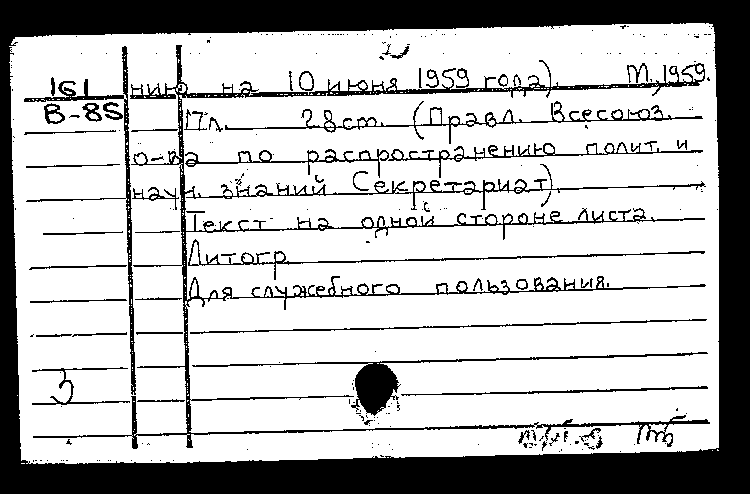 161 нию на 10 июня 1959 года). М., 1959.
В-85 17л. 28 cm. (Правл. Всесоюз.
о-ва по распространению полит. и
науч. знаний. Секретариат).
Текст на одной стороне листа.
Литогр.
Для служебного пользования.
3